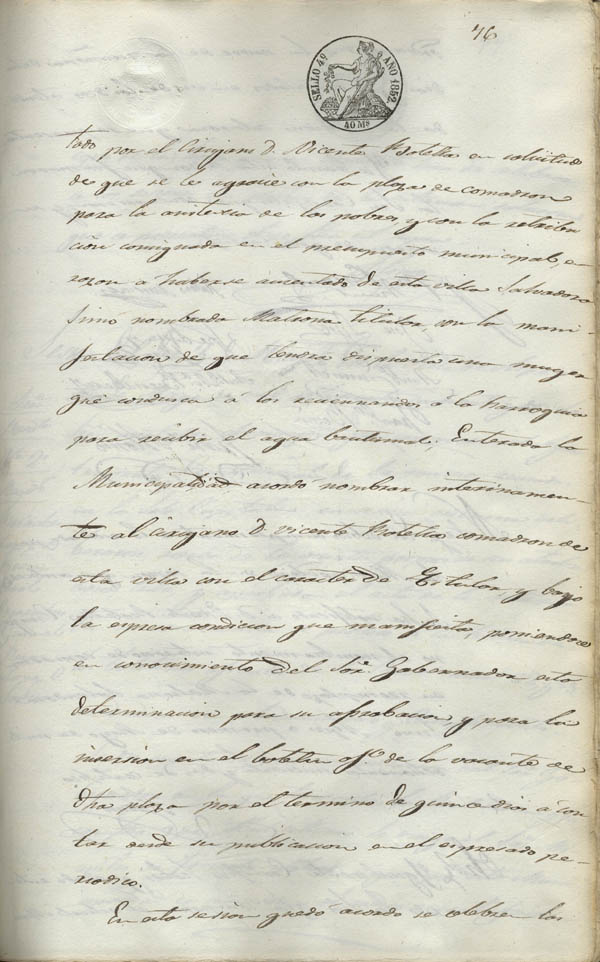 76
SELLO 4º AÑO 1852.
40 Ms
tado por el Cirujano D. Vicente Botella en solicitud
de que se le agracie con la plaza de comadron
para la asistencia de los pobres, y con la retribu
cion consignada en el presupuesto municipal, en
razon a haberse ausentado de esta villa Salvadora
Simó nombrada Matrona titular, con la mani-
festacion de que tendra dispuesta una muger
que conduzca á los recien nacidos á la Parroquia
para recibir el agua bautismal; Enterada la
Municipalidad acordó nombrar interinamen-
te al Cirujano D. Vicente Botella comadron de
esta villa con el caracter de Titular, y bajo
la espresa condicion que manifiesta, poniendose
en conocimiento del Sor. Gobernador esta
determinacion para su aprobacion, y para la
insercion en el boletin ofl. de la vacante de
dha plaza por el termino de quince dias á con
tar desde su publicacion en el espresado pe-
riodico.
En esta sesion quedó acordo se celebren las